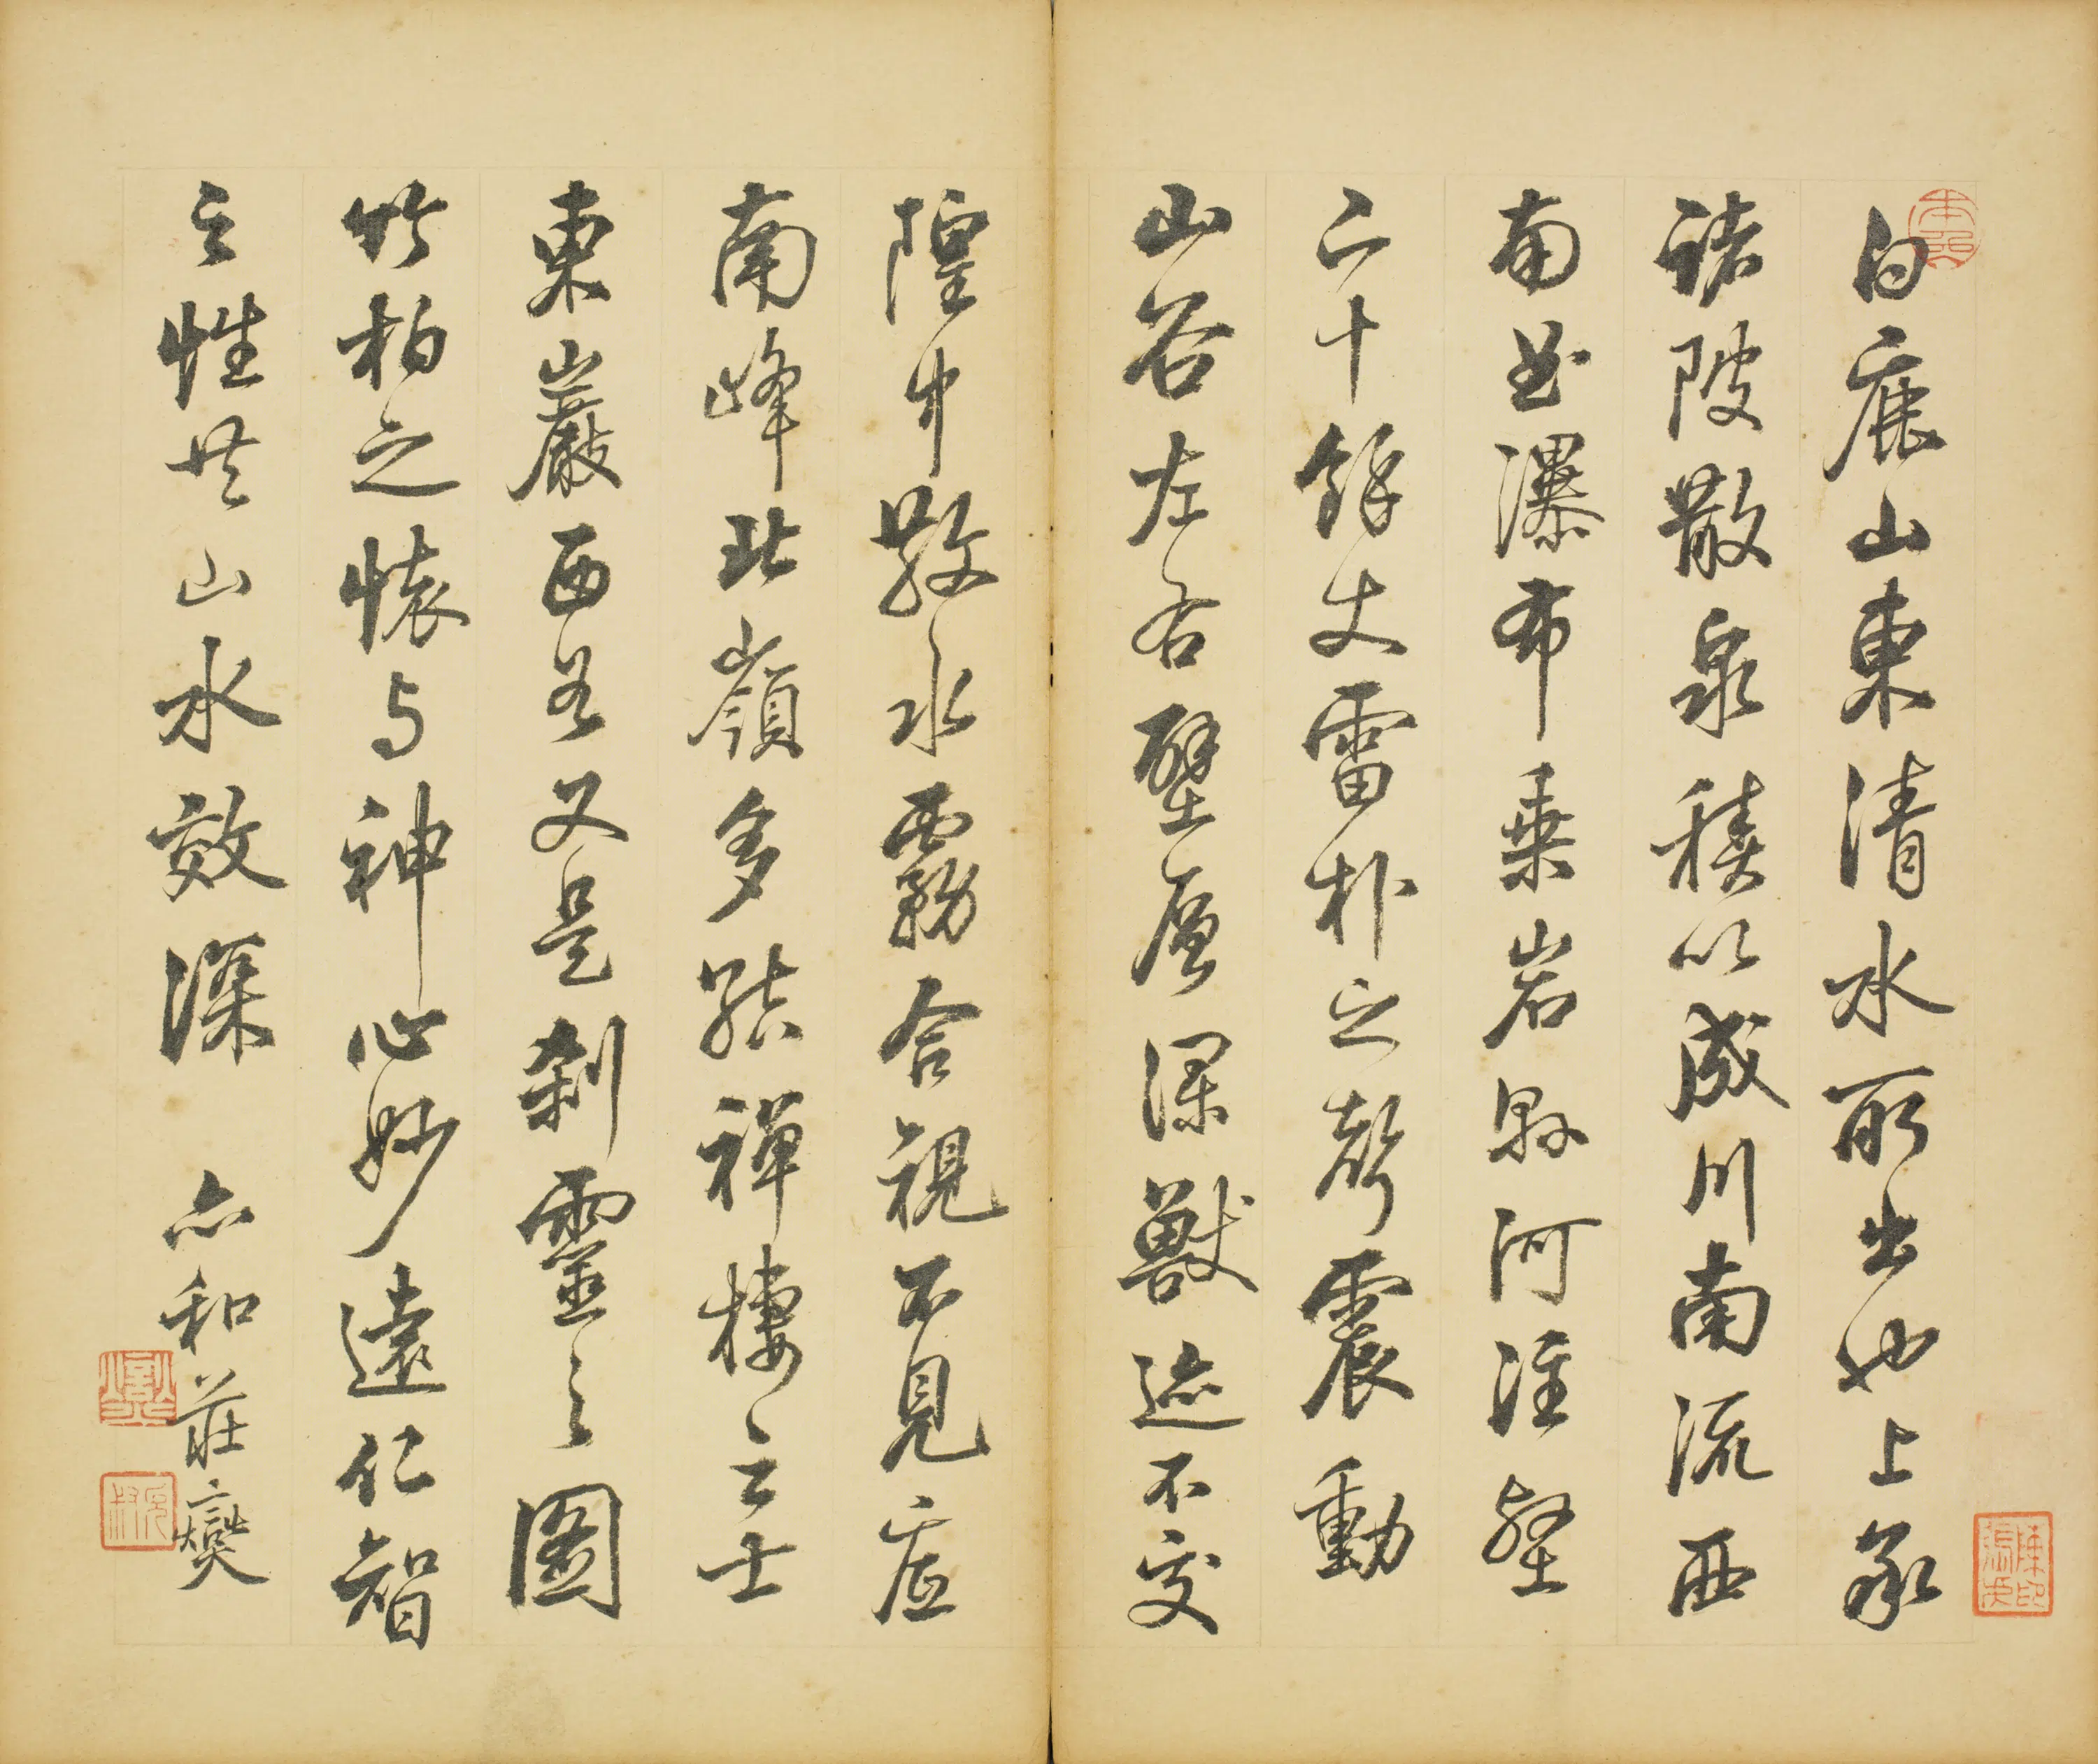 白鹿山東清水所出也上承
諸陂散泉積以成川南流西
南出瀑布乗岩縣河注壑
二十餘丈雷朴之聲震動
山谷左右壁層深獸迹不交
隍中散水霧合視不見底
南峰北嶺多結禪棲之士
東巖西谷又是刹靈之圖
竹柏之懷与神心妙遠仁智
之性共山水效深 六和莊爕